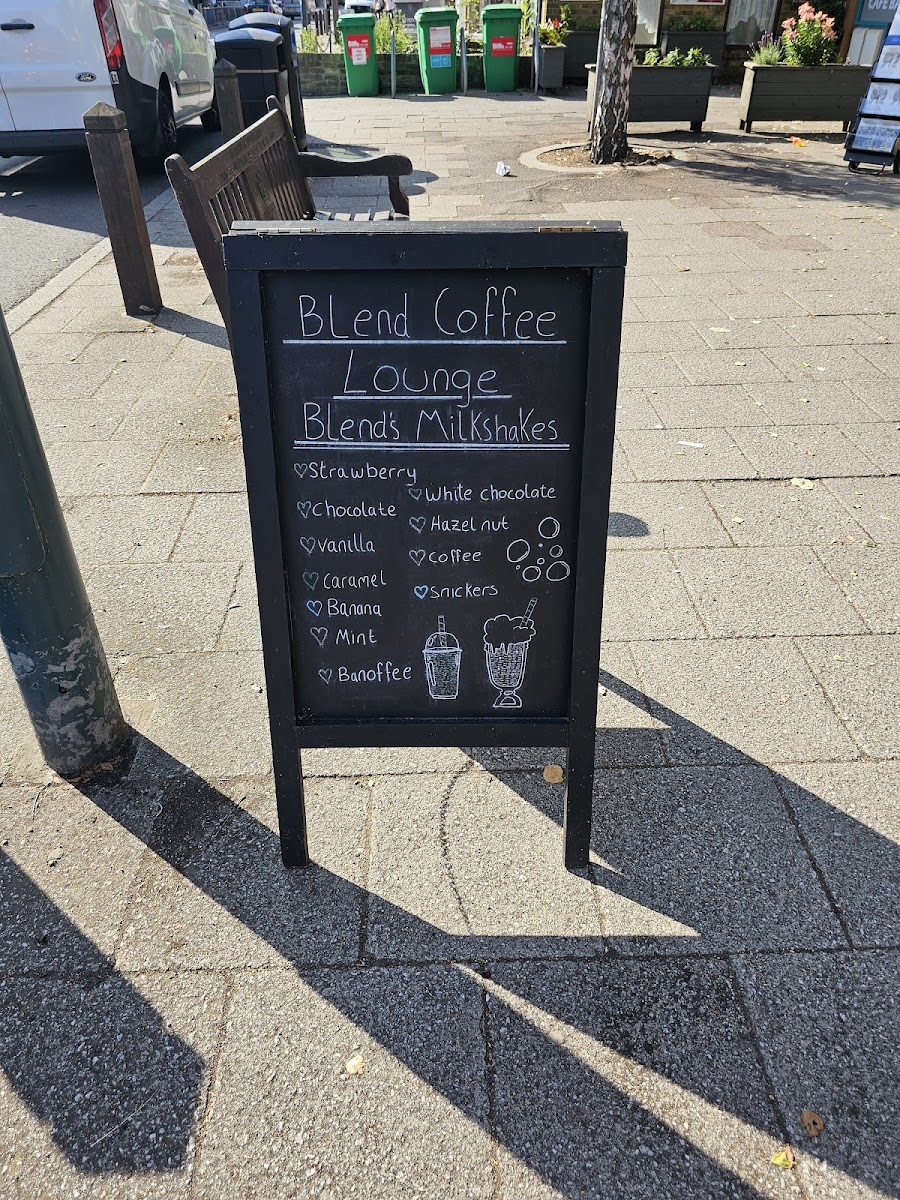 BLend Coffee
Lounge
Blend's Milkshakes
Strawberry
Chocolate
Vanilla
Caramel
Banana
Mint
Banoffee
White chocolate
Hazelnut
Coffee
Snickers